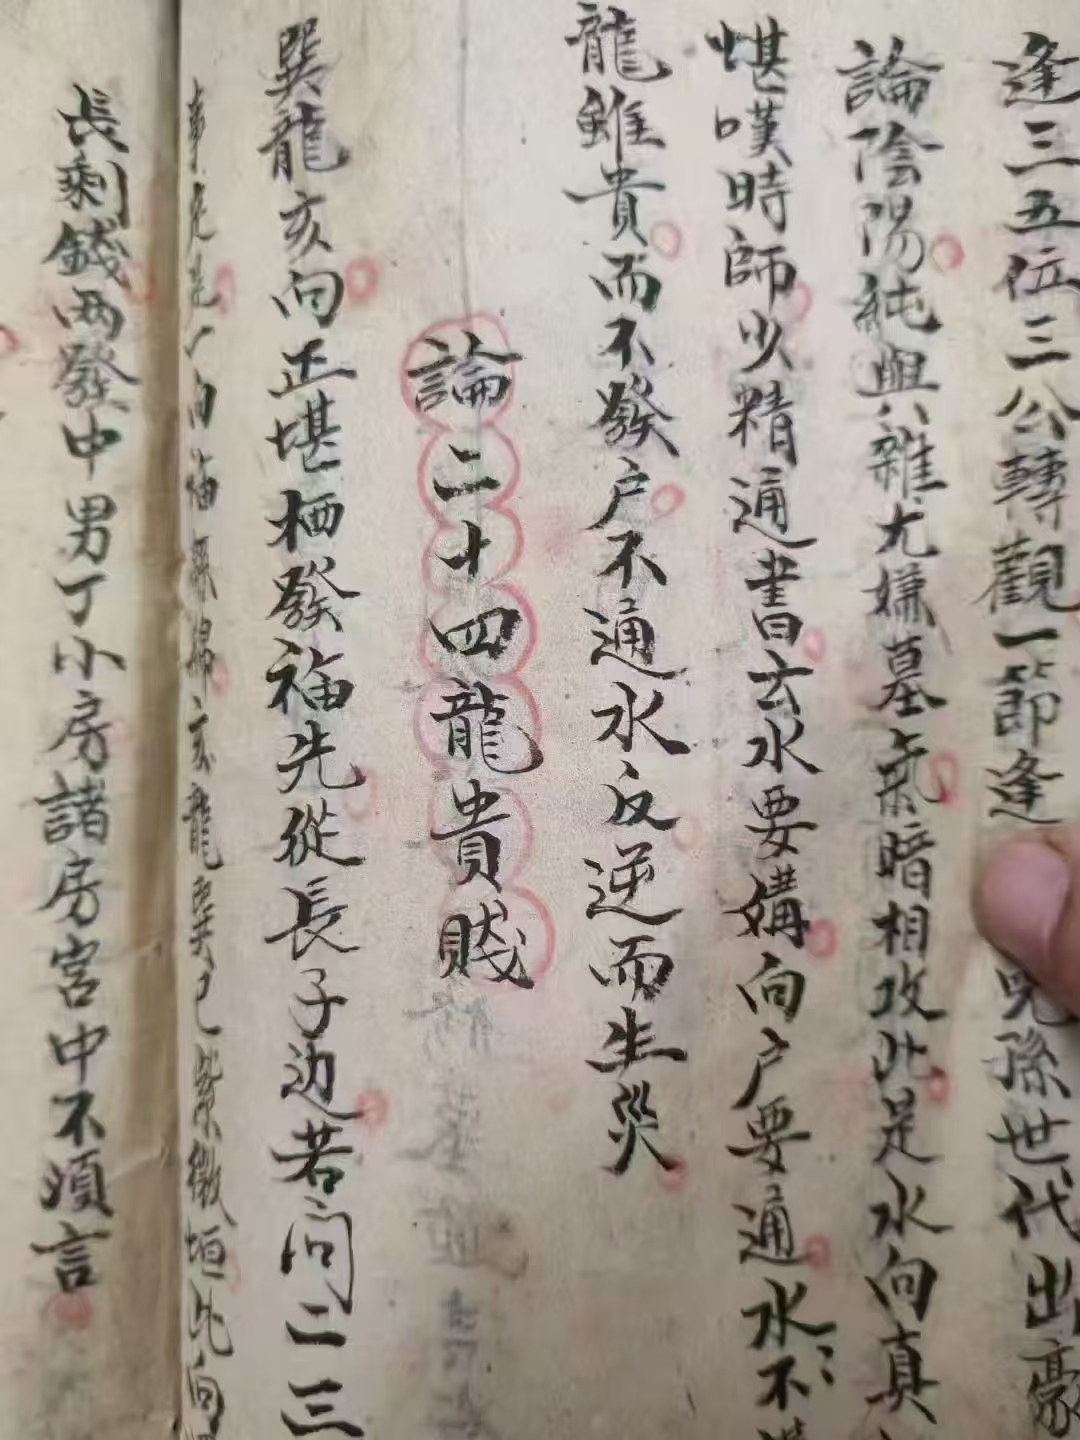 逢三五位三公轉觀一節逢兒孫世代出豪
論陰陽純與八雜尤嫌墓氣暗相攻此是水向真
堪嘆時師少精通書云水要媾向户要通水不
龍雖貴而不發户不通水反逆而生災
論二十四龍貴賤
巽龍亥向正堪栖發福先從長子边若问二三
向福綿亥龍巽巳紫微垣此向
長剩錢两發中男丁小房諸房宫中不須言